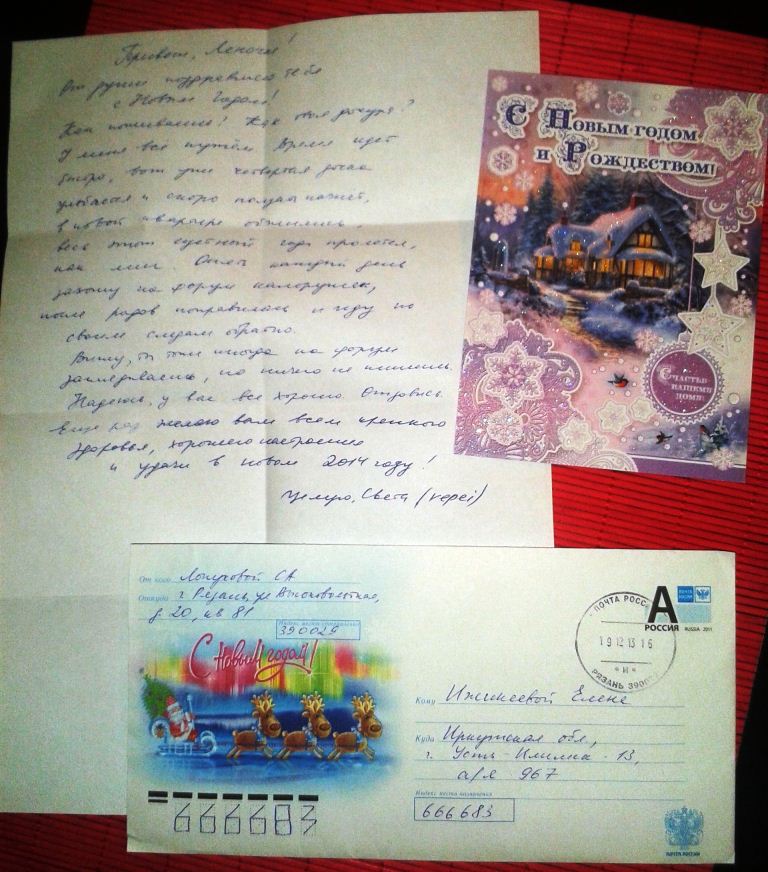 Привет, Леночка!
От души поздравляю тебя
с Новым Годом!
Как поживаешь? Как твоя дочура?
У меня всё путём. Время идет
быстро, вот уже четвертая дочка
улыбается и скоро ползать начнёт,
в новой квартире обжились,
весь этот суетный год пролетел,
как миг. Опять каждый день
захожу на форум
после родов поправилась и иду по
своим следам обратно.
Вижу, ты тоже иногда на форум
заглядываешь, но ничего не пишешь.
Надеюсь, у вас все хорошо. Отзовись.
Еще раз желаю вам всем крепкого
здоровья, хорошего настроения
и удачи в новом 2014 году!
Целую, Света (vepei)
С Новым годом
и Рождеством!
Счастья
вашему
дому!
От кого С А
Откуда г Рязань, ул Высоковольтная,
д. 20, кв 81
Индекс места отправления
390029
С Новым годом!
ПОЧТА РОССИИ
19 12 13 16
«И»
РЯЗАНЬ 3900
А
РОССИЯ RUSSIA 2011
Кому Елене
Куда Иркутская обл,
г. Усть-Илимск - 13,
а/я 967
Индекс места назначения
666683
666683
ПОЧТА РОССИИ